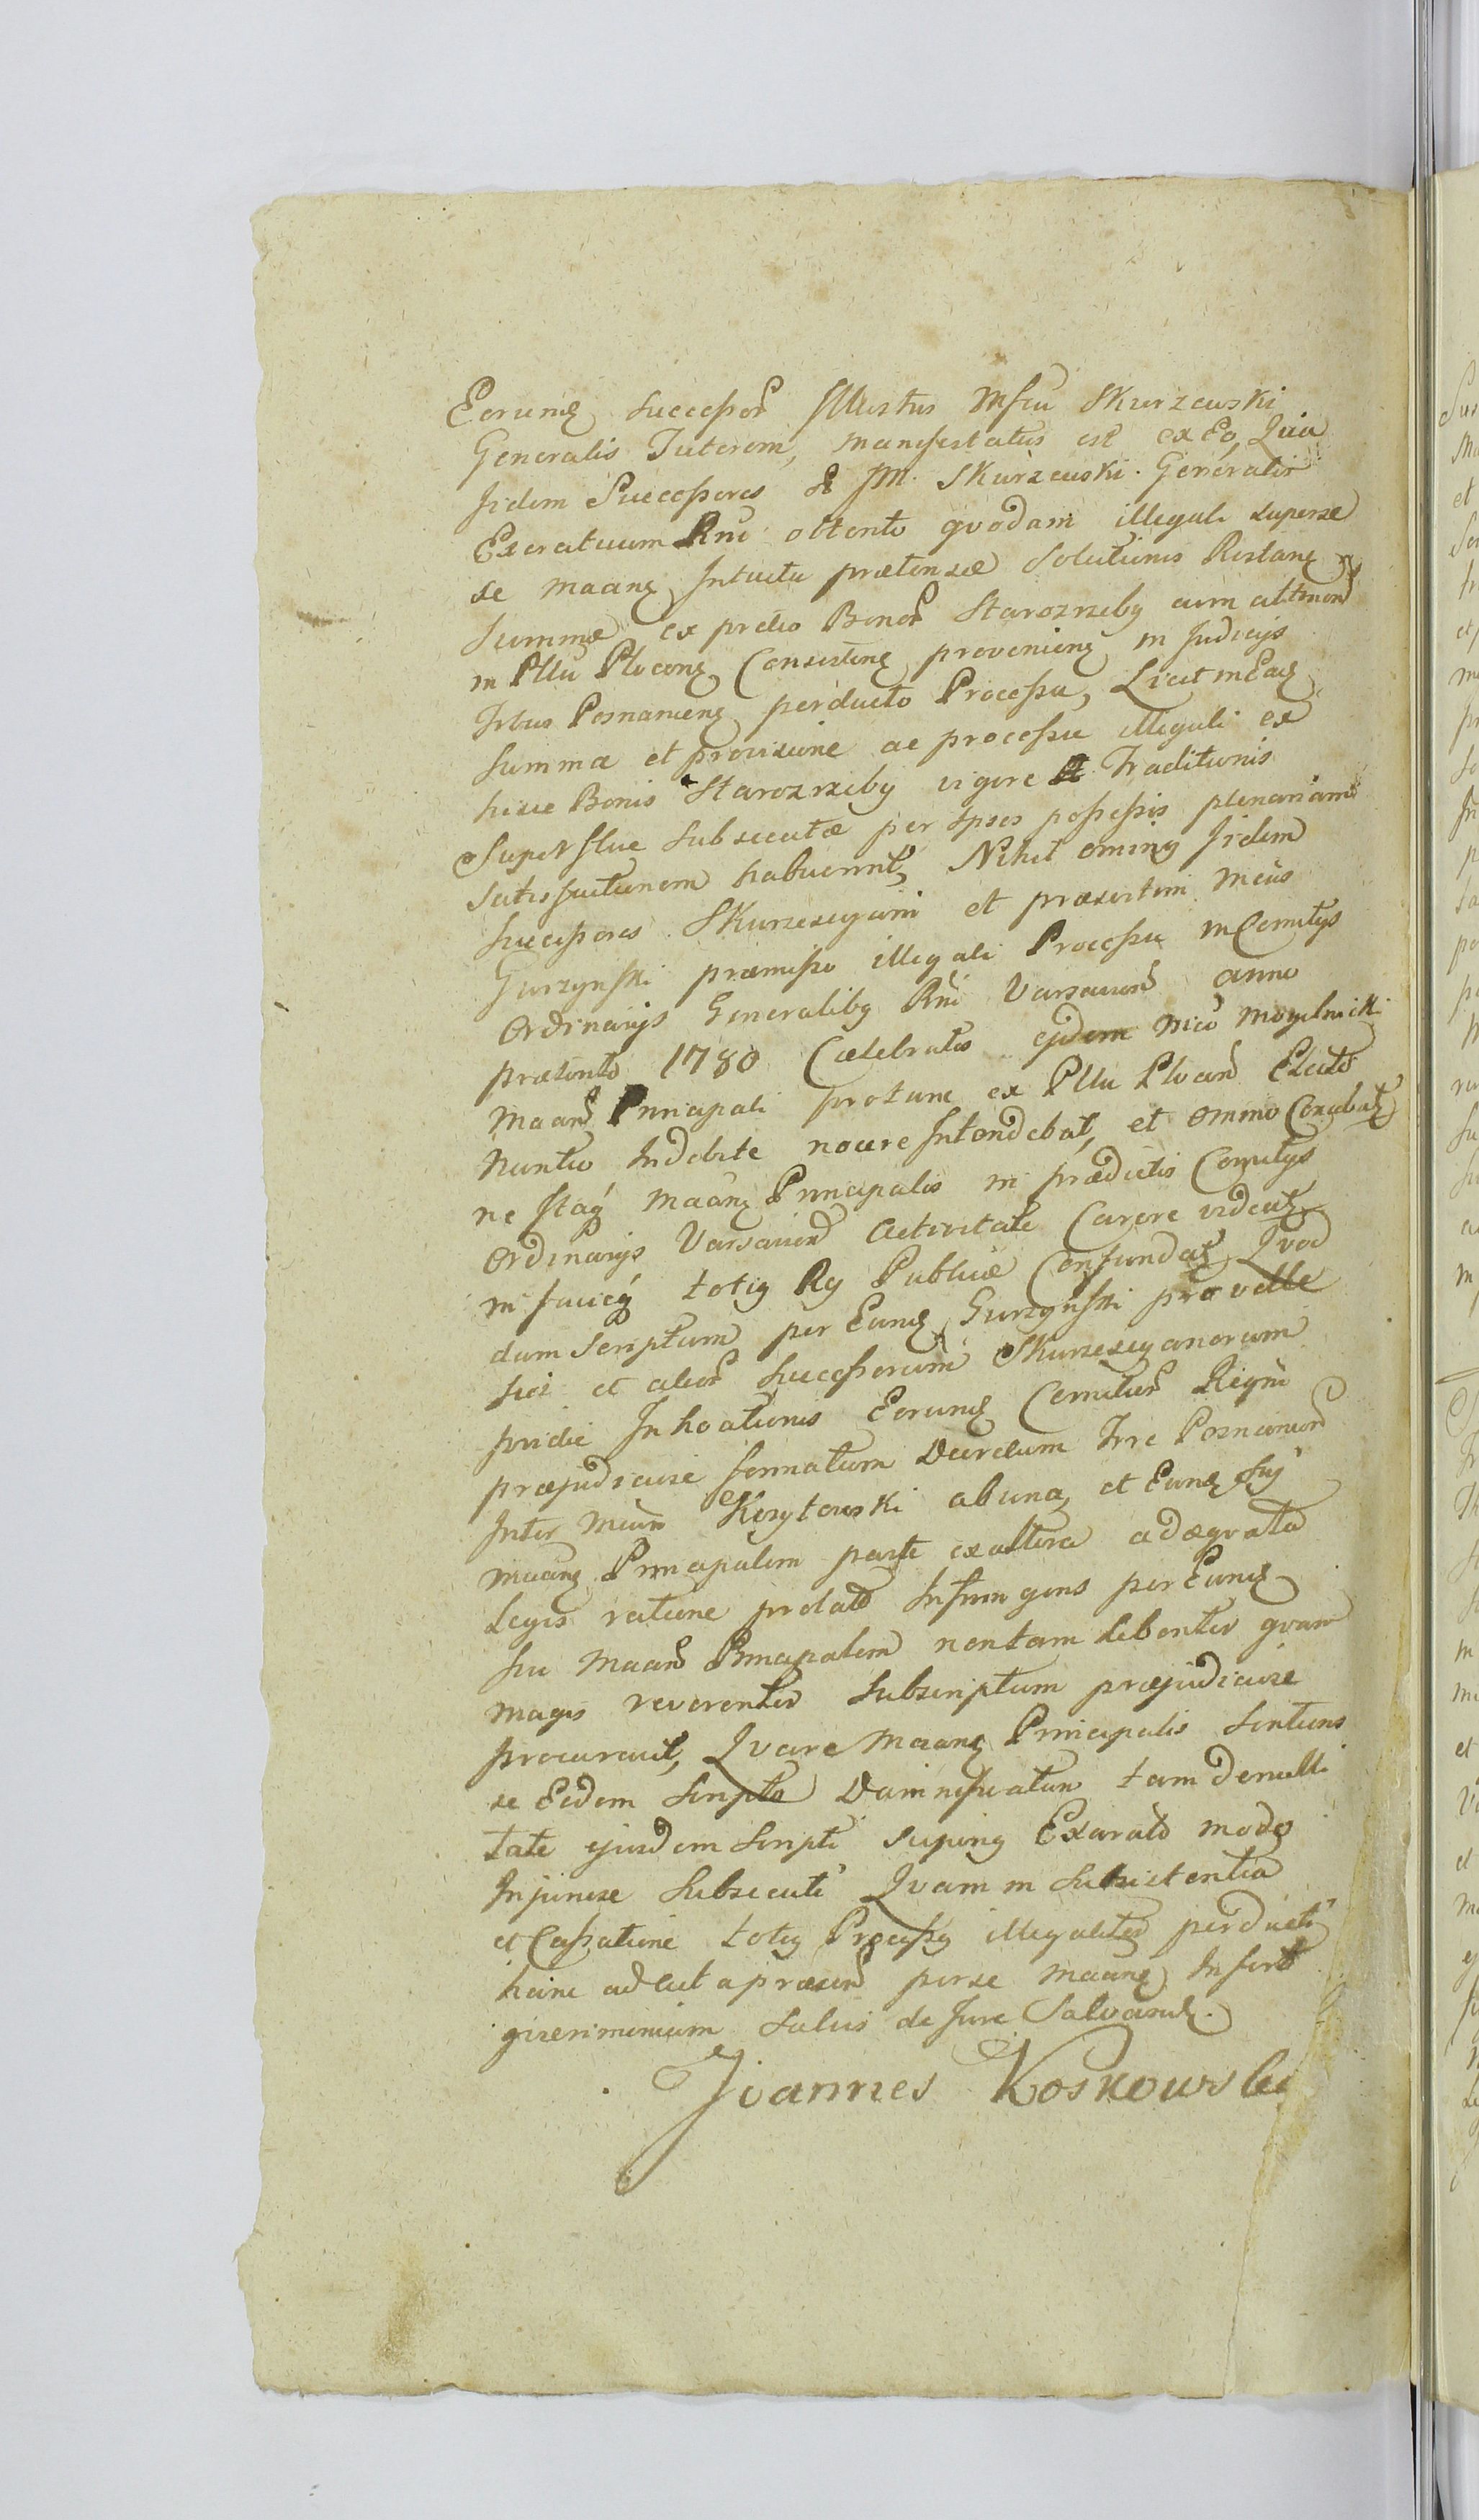 Eorundę Successorꝝ Illustris Mfcu Skurzewski
Generalis Tutorem, manifestatus est ex Eo, Quia
Iidem Successores M. Skurzewski Generalis
Exercituum Rni obtento quodam illegali super se
se Maanę Intuitu prætensæ Solutionis Restanę
Summæ ex prætio Bonorꝝ Starozrzeby cum attinenꝝ
in Pllu Plocenę Consistenę provenienę in Judicijs
Trbus Posnanienę perducto Processu, Licet in Eadę
Summa et provisione ac processu illegali ex
hisce Bonis Starozrzeby vigore Traditionis
Super slue Subsecutæ per Ipsos possessis plenariam
Satisfactionem habuerint, Nihil ominꝰ Iidem
Successores Skurzesciani et præsertim Mcus
Gurzynski præmisso illegali Processu in Comitijs
Ordinarijs Generalibꝰ Rni Varsavienꝝ anno
præsenti 1780 Cælebratis ejdem Mco Mogilnicki
Maanꝝ Principali pro tunc ex Pllu Plocenꝝ Electo
Nuntio Indebite nocere Intendebat, et omnino Conabatꝝ
ne Itaq́ Maanę Principalis in prædictis Comitijs
Ordinarijs Varsavienꝝ Activitate Carere videatꝝ
in facieq́ totiꝰ Ry Publicæ Confundatꝝ Quod
dam Scriptum per Eundę Gurzynski pro velle
sui et alior Successorum Skurzescyanorum
pridie Inhoationis Eorundę Comitiorꝝ Regni
præjudiciose formatum Decretum Trre Posnanienꝝ
Inter Mcum Korytowski ab una, et Eundę Suꝰ
Maanę Principalem parte ex altera adæquata
Legis ratione prolato Infringens per Eundę
suꝰ Maanꝝ Principalem non tam libenter quam
magis reverenter Subscriptum præjudiciose
procuravit, Quare Maanę Principalis Sentiens
se Eodem Scripto Damnificatum tam de nulli
tate ejusdem Scripti Superiꝰ Exarato modo
Injuriose Subsecuti Quam in Subsistentia
et Cassatione totiꝰ Processꝰ illegaliter perducti
hinc ad Acta præsenꝝ per se Maanę Infert
Salvis de Jure Salvandę.
Joannes Koskowski